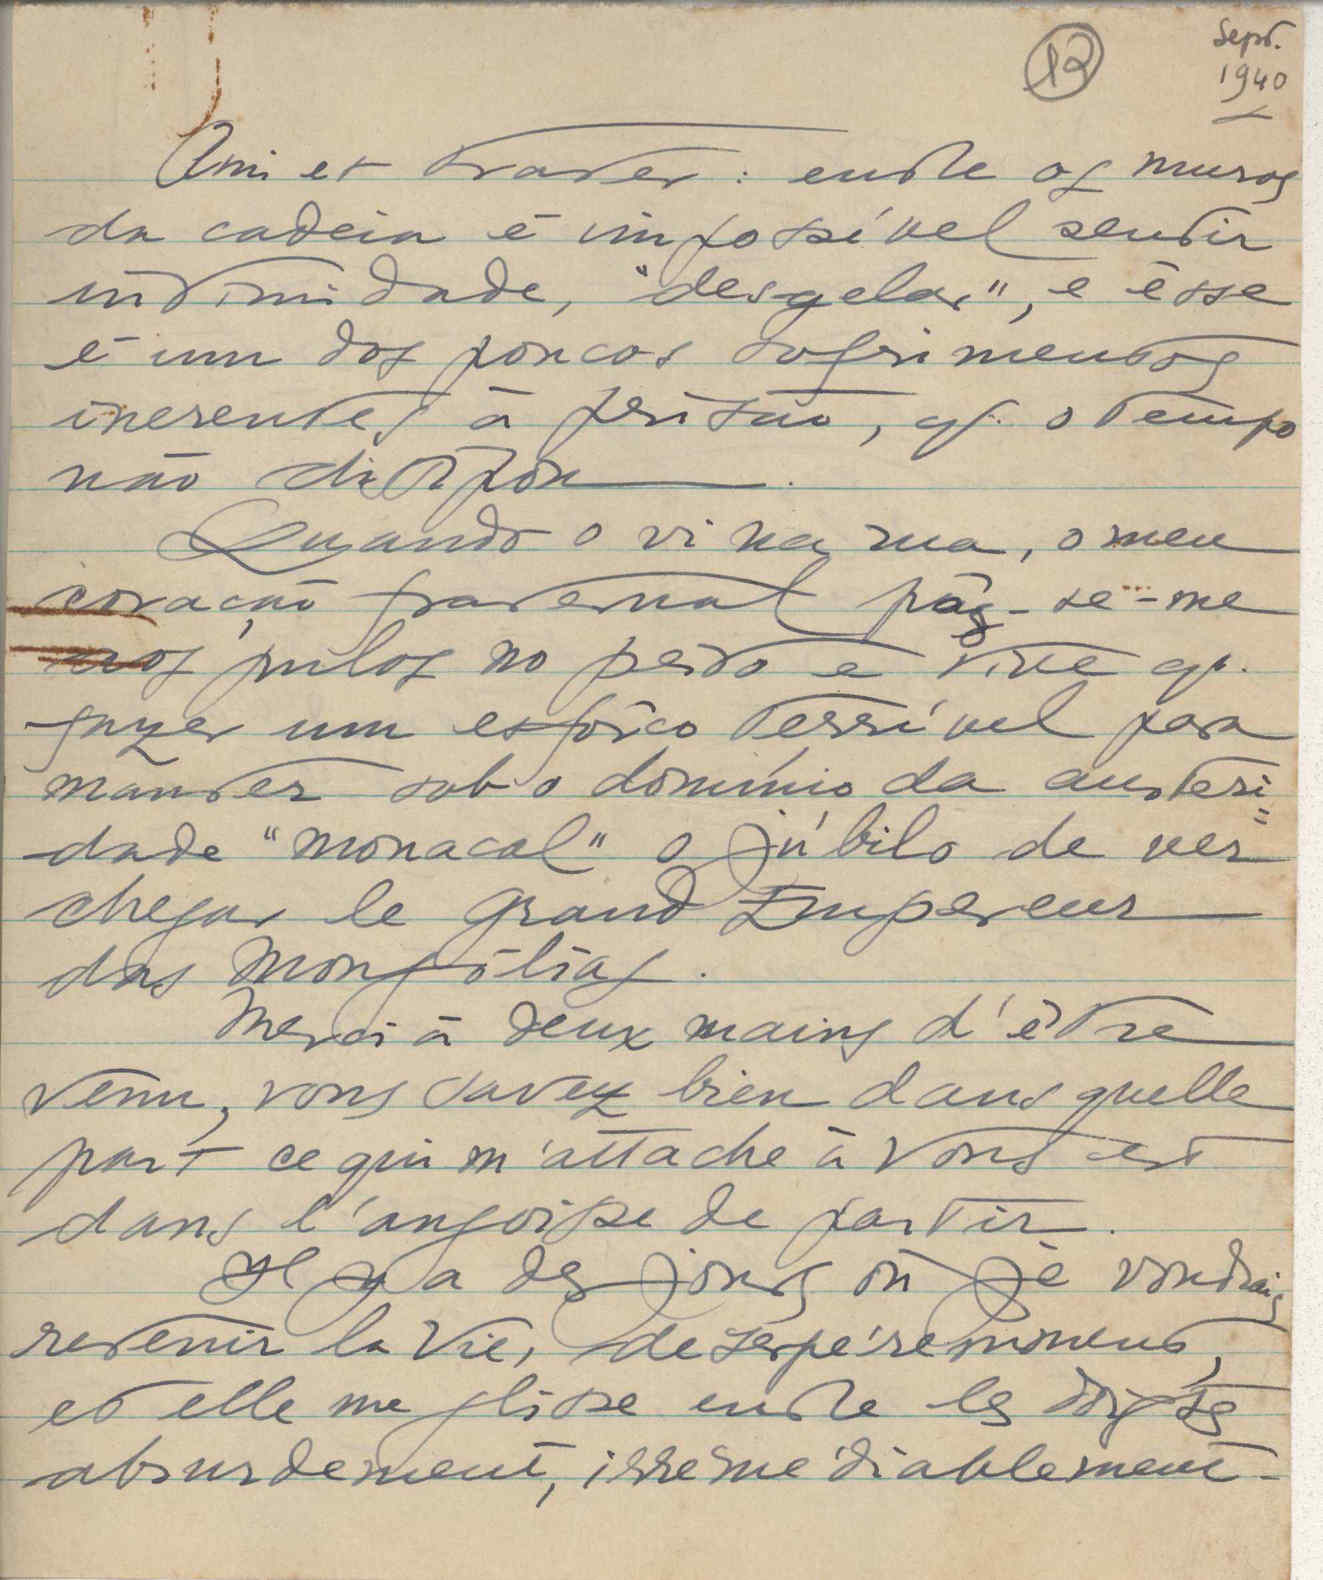 12
Sept.
1940
Ami et frater: entre os muros
da cadeia é impossível sentir
intimidade, "desgelar", e êsse
é um dos poucos sofrimentos
inerentes à prisão, q. o tempo
não
Quando o vi na rua, o meu
coração fraternal pôs-se-me
aos pulos no peito e tive q.
fazer um esfôrço terrível para
manter sob o domínio da austeri=
dade "monacal" o júbilo de ver
chegar le grand Empereur
das Mongólias.
Merci à deux mains d'être
venu, vous savez bien dans quelle
part ce qui m'attache à vous est
dans l'angoisse de partir.
Il y a des jours où je voudrais
retenir la Vie, desespérémment,
et elle me glisse entre les doigts
absurdement, irrémédiablement-